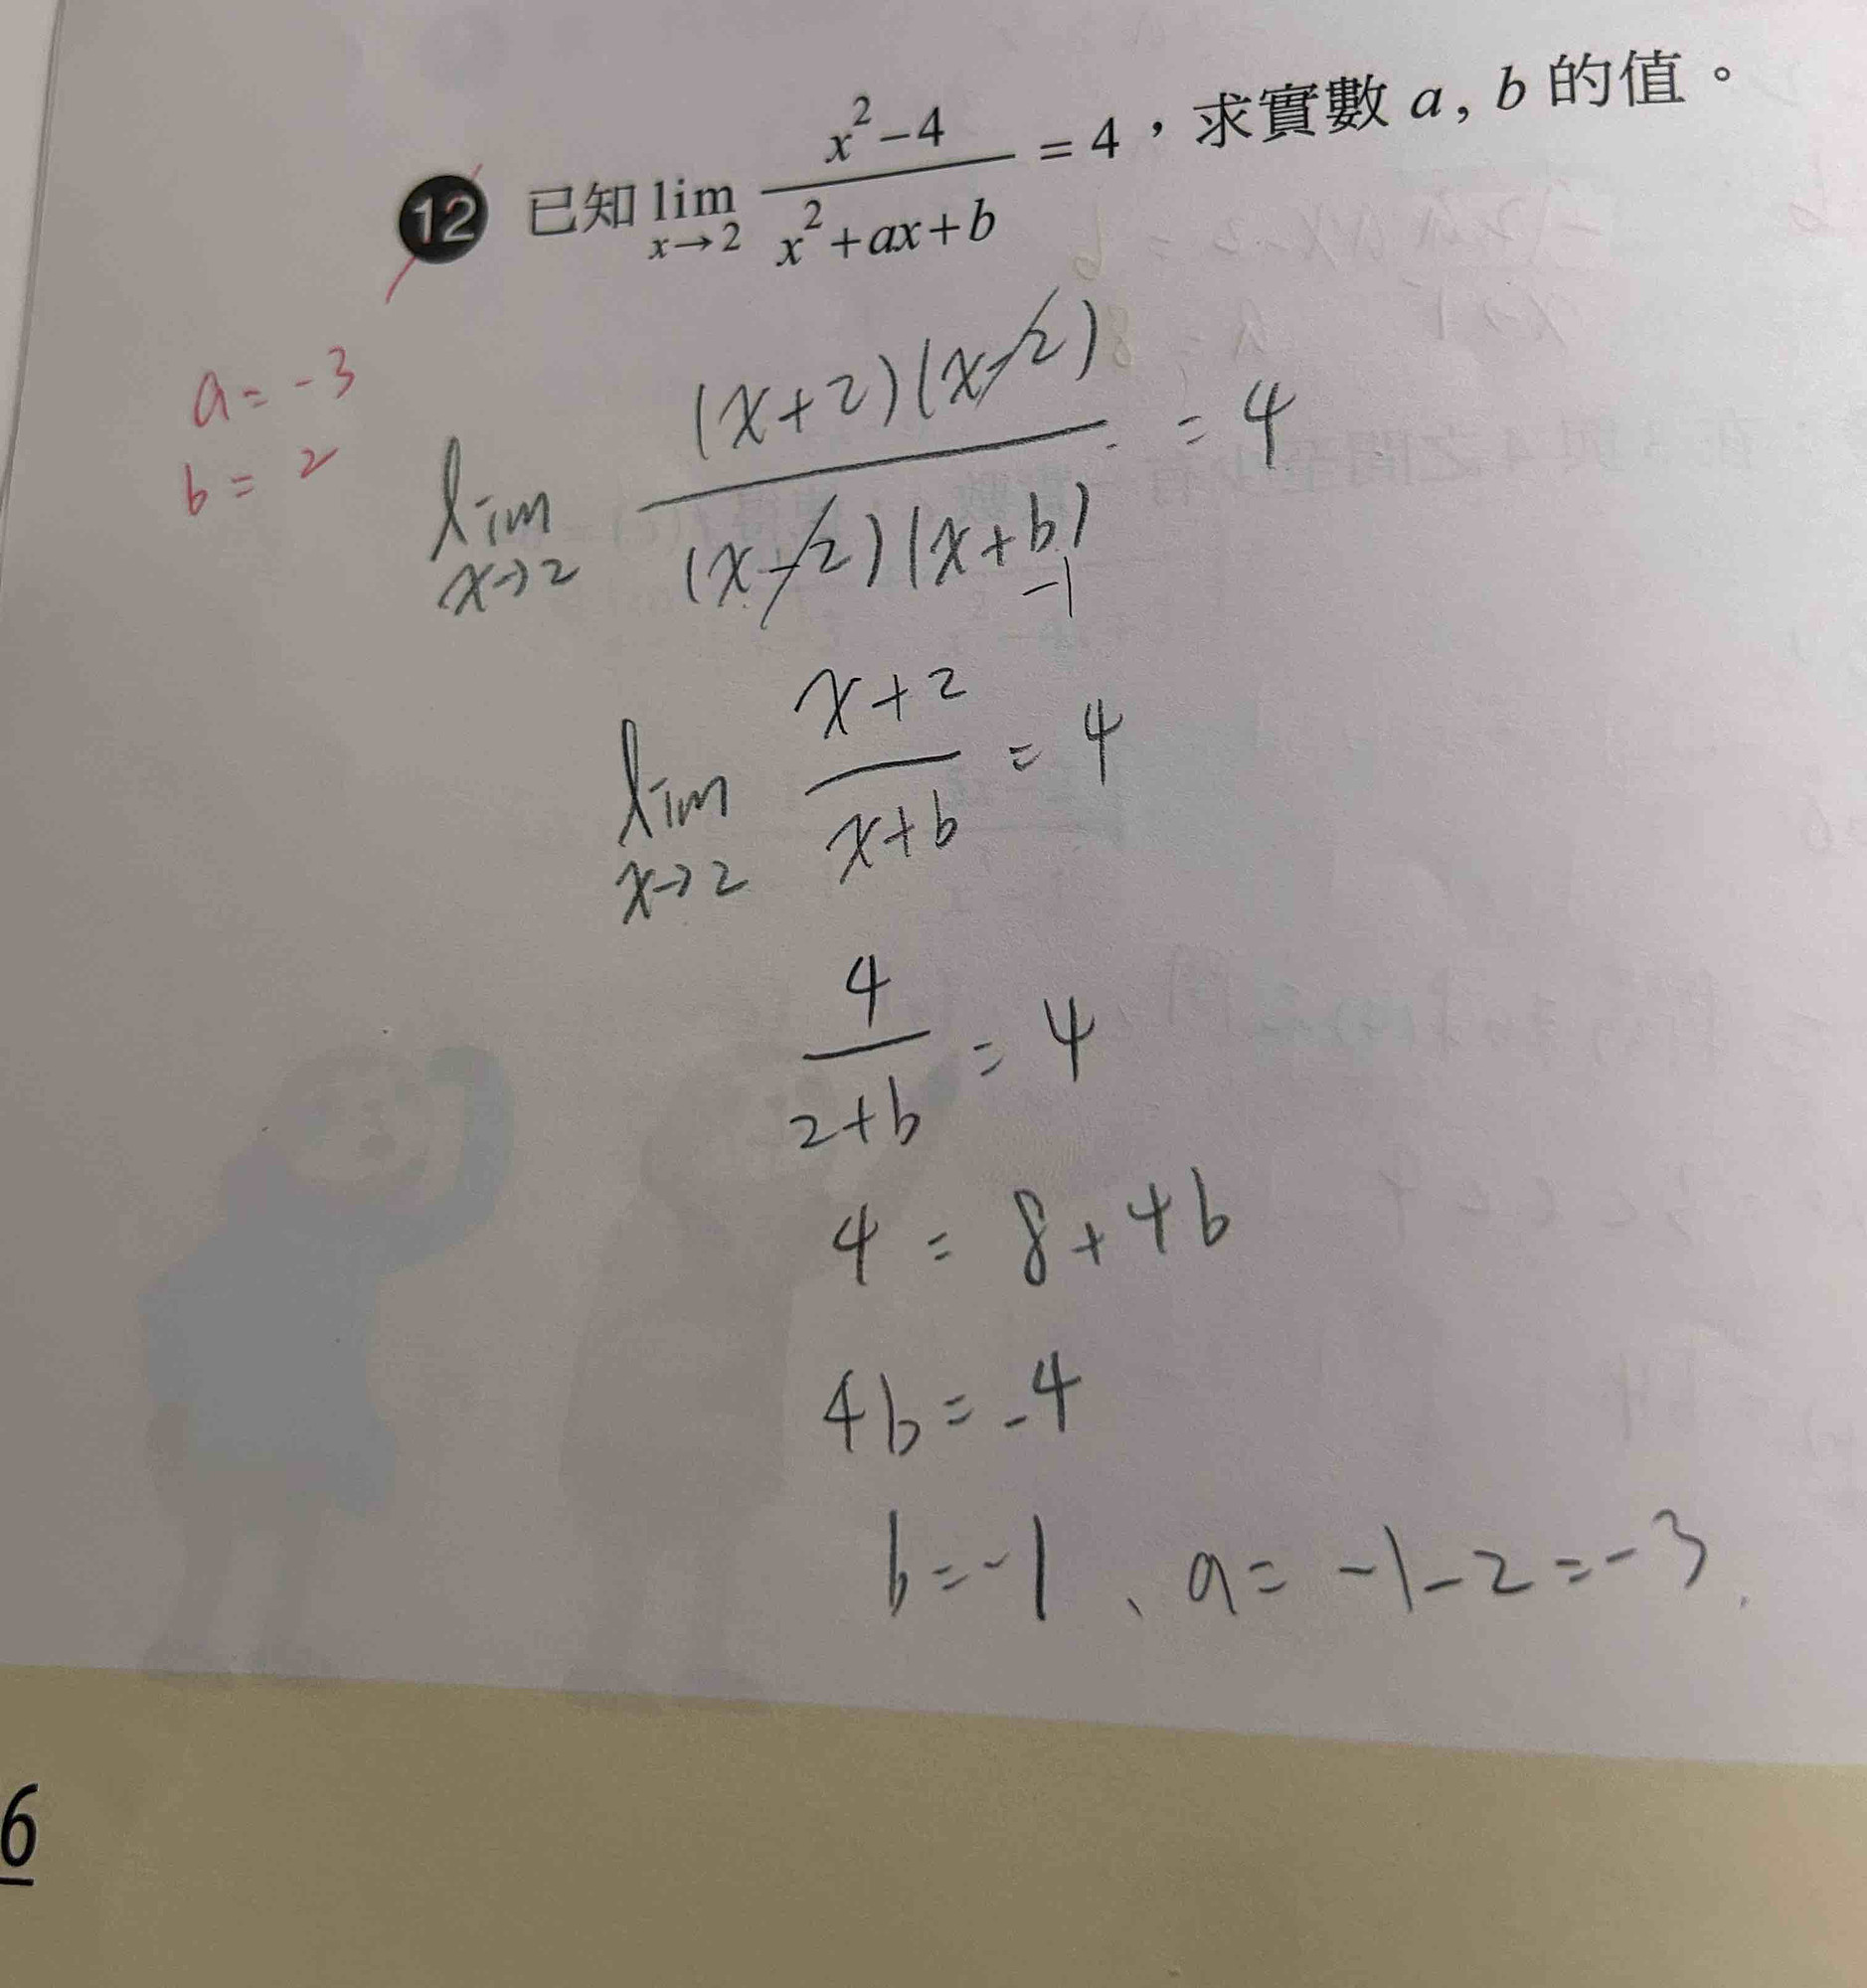 12 已知 lim x→2 (x²-4)/(x²+ax+b) = 4，求實數 a, b 的值。
a = -3
b = 2
lim x→2 (x+2)(x-2)/(x-2)(x+b) = 4
-1
lim x→2 (x+2)/(x+b) = 4
4/(2+b) = 4
4 = 8 + 4b
4b = -4
b = -1、a = -1-2 = -3
6